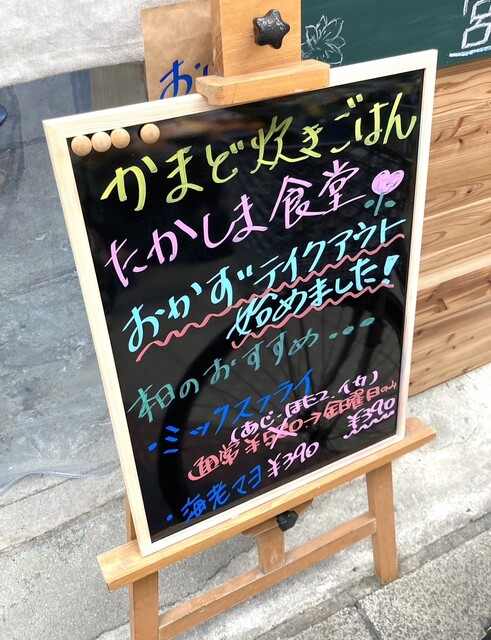 かまど炊きごはん
たかしま食堂
おかずテイクアウト
始めました!
本日のおすすめ・・・
・ミックスフライ
(あじ、ほたて、イカ)
通常¥500→金曜日のみ
¥390
・海老マヨ ¥390